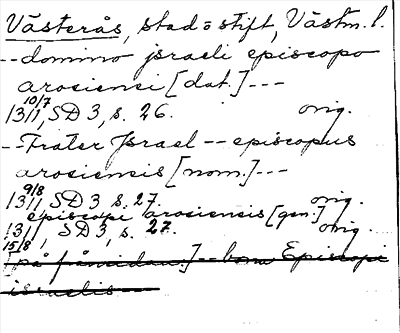 Västerås, stad o stift, Västm. l.
-- domino jsraeli episcopo
arosiensi [dat.] ---
1311 10/7, SD 3, s. 26. orig.
-- Frater Jsrael -- episcopus
arosiensis [nom.] ---
1311 9/8, SD 3 s. 27. orig.
episcopi arosiensis [gen.]
1311 15/8, SD 3, s. 27. orig.
[på frånsidan:] -- bona Episcopi
israelis --